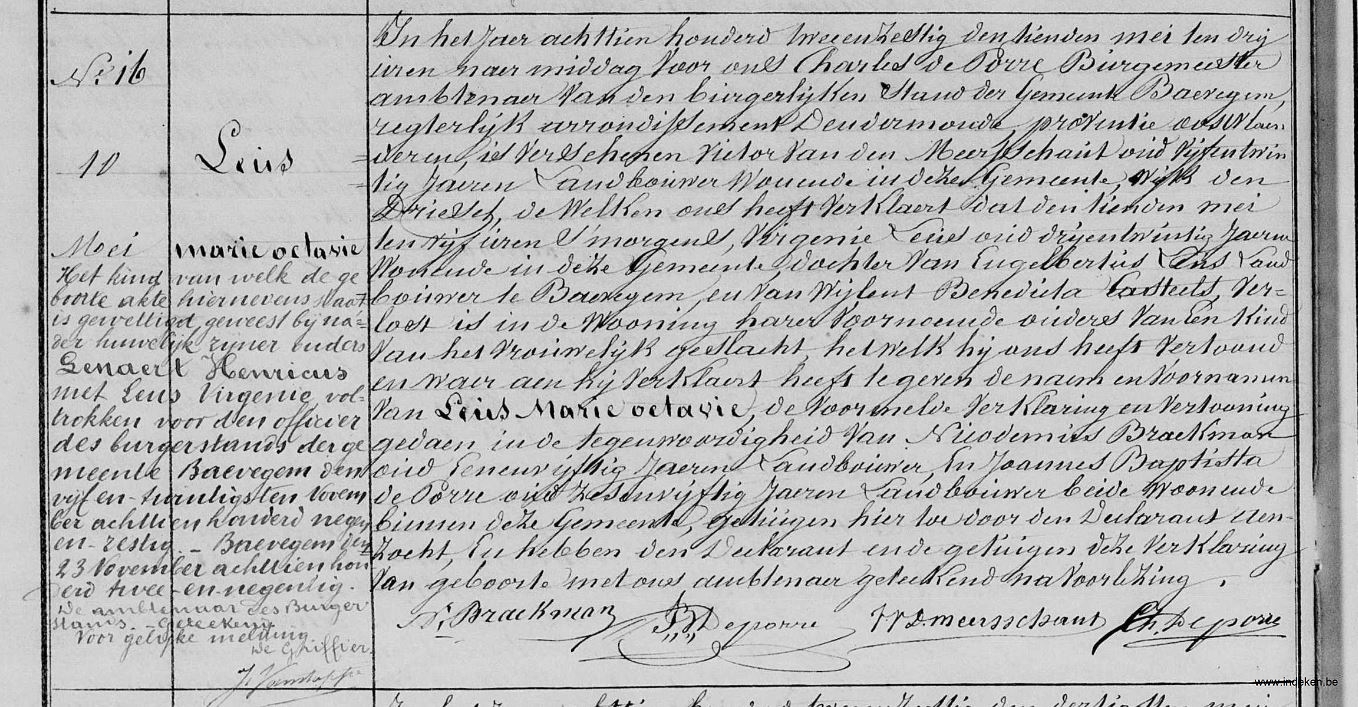 N.° 16
10
Leüs
Mei
marie octavie
Het kind van welk de ge
boorte akte hiernevens staat
is gewettigd geweest bij na=
der huwelijk zijner ouders
Lenaert Henricus
met Leus Virgenie vol-
trokken voor den officier
des burgerstands der ge
meente Baevegem den
vijf en-twintigsten Novem
ber achttien honderd negen
en-zestig. - Baevegem den
23 November achttien hon
derd twee-en-negentig.
De ambtenaar des Burger
stands. - Geteekend
Voor gelijke melding
De Griffier.
In het Jaer achttien honderd tweeenzestig den tienden mei ten drij
üren naer middag voor ons Charles de Porre Bürgemeester
ambtenaer van den bürgerlijken Stand der Gemeente Baevegem,
regterlijk arrondissement Dendermonde, provintie oostvlaen
deren, is verschenen Victor Van den Meersschaüt oüd vijfentwin
tig Jaeren Landboüwer Wonende in deze Gemeente, Wijk den
Driesch, de Welken ons heeft verklaert dat den tienden mei
ten vijf üren s'morgens, Virgenie Leüs oüd drijentwintig Jaeren
Wonende in deze Gemeente, dochter van Engelbertüs Leüs Land
boüwer te Baevegem, en van Wijlent Benedicta Casteels, ver=
lost is in de Wooning harer voornoemde oüders van Een Kind
van het vroüwelijk geslacht, hetwelk hij ons heeft vertoond
en waer aen hij verklaert heeft te geven de naem en voornamen
van Leüs Marie octavie, de voormelde verklaring en vertooning
gedaen in de tegenwoordigheid van Nicodemüs Braekman
oüd Eenenvijftig Jaeren Landboüwer, En Joannes Baptista
de Porre oüd zesenvijftig Jaeren Landboüwer beide Woonende
binnen deze Gemeente, getüigen hier toe door den Declarant aen-
zocht, En hebben den Declarant en de getüigen deze verklaring
van geboorte met ons ambtenaer geteekend na voorlezing.
N. Braekman JBDeporre VVDmeersschaut Ch. Deporre
www.indeken.be